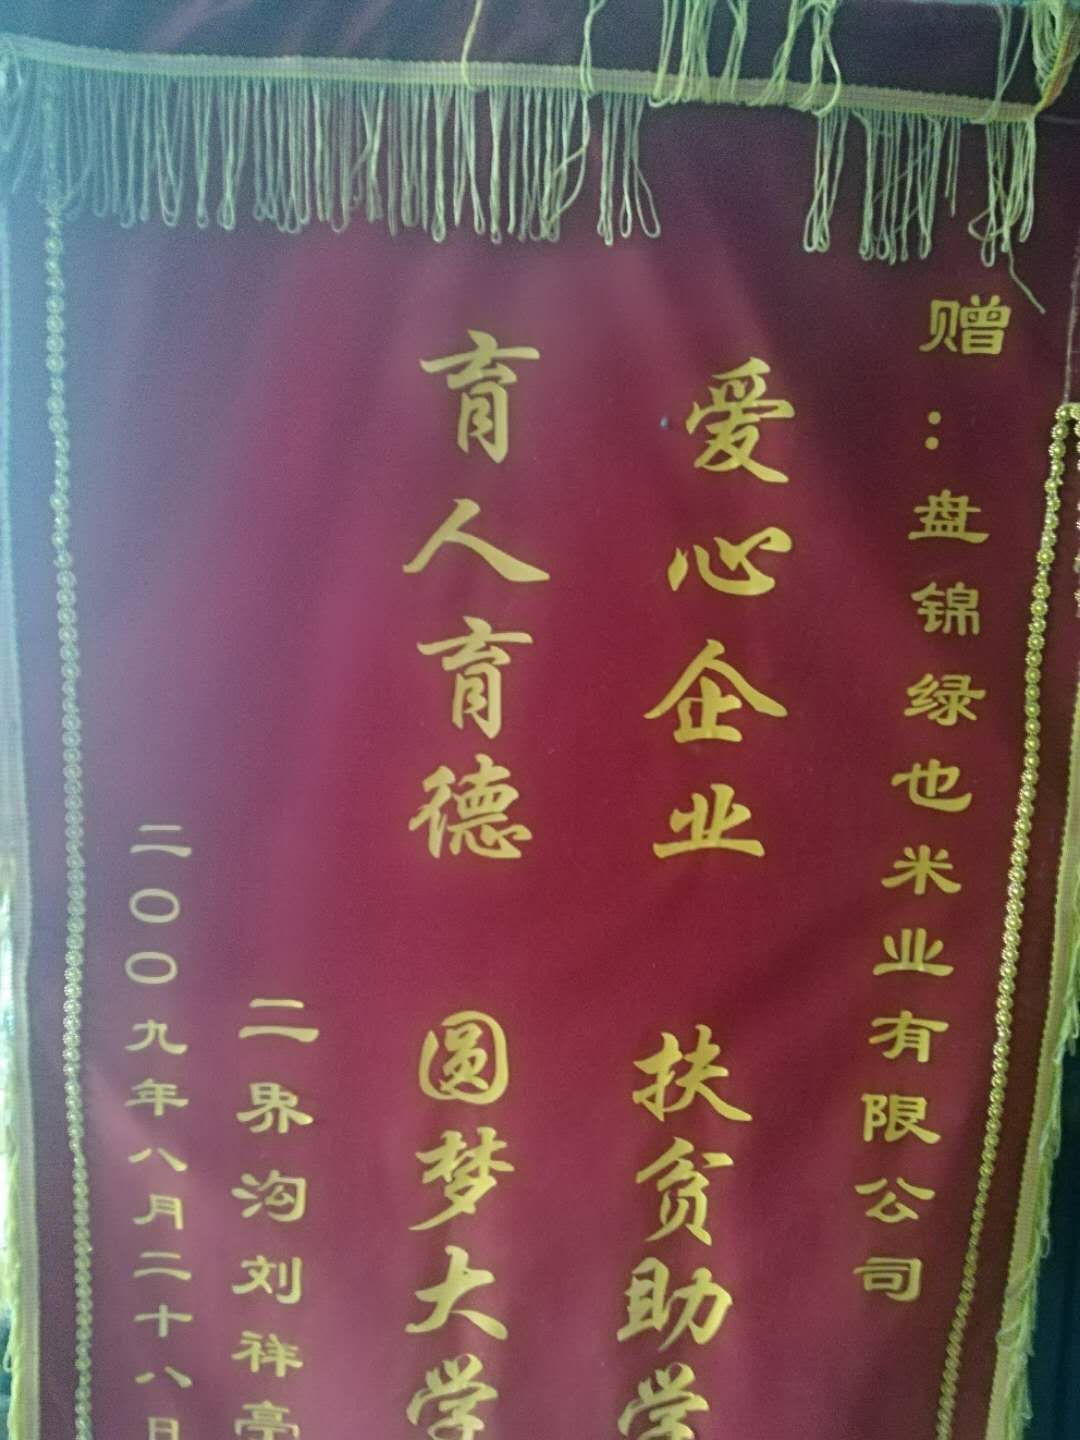 赠：盘锦绿也米业有限公司
爱心企业 扶贫助学
育人育德 圆梦大学
二界沟刘祥亭
二〇〇九年八月二十八日